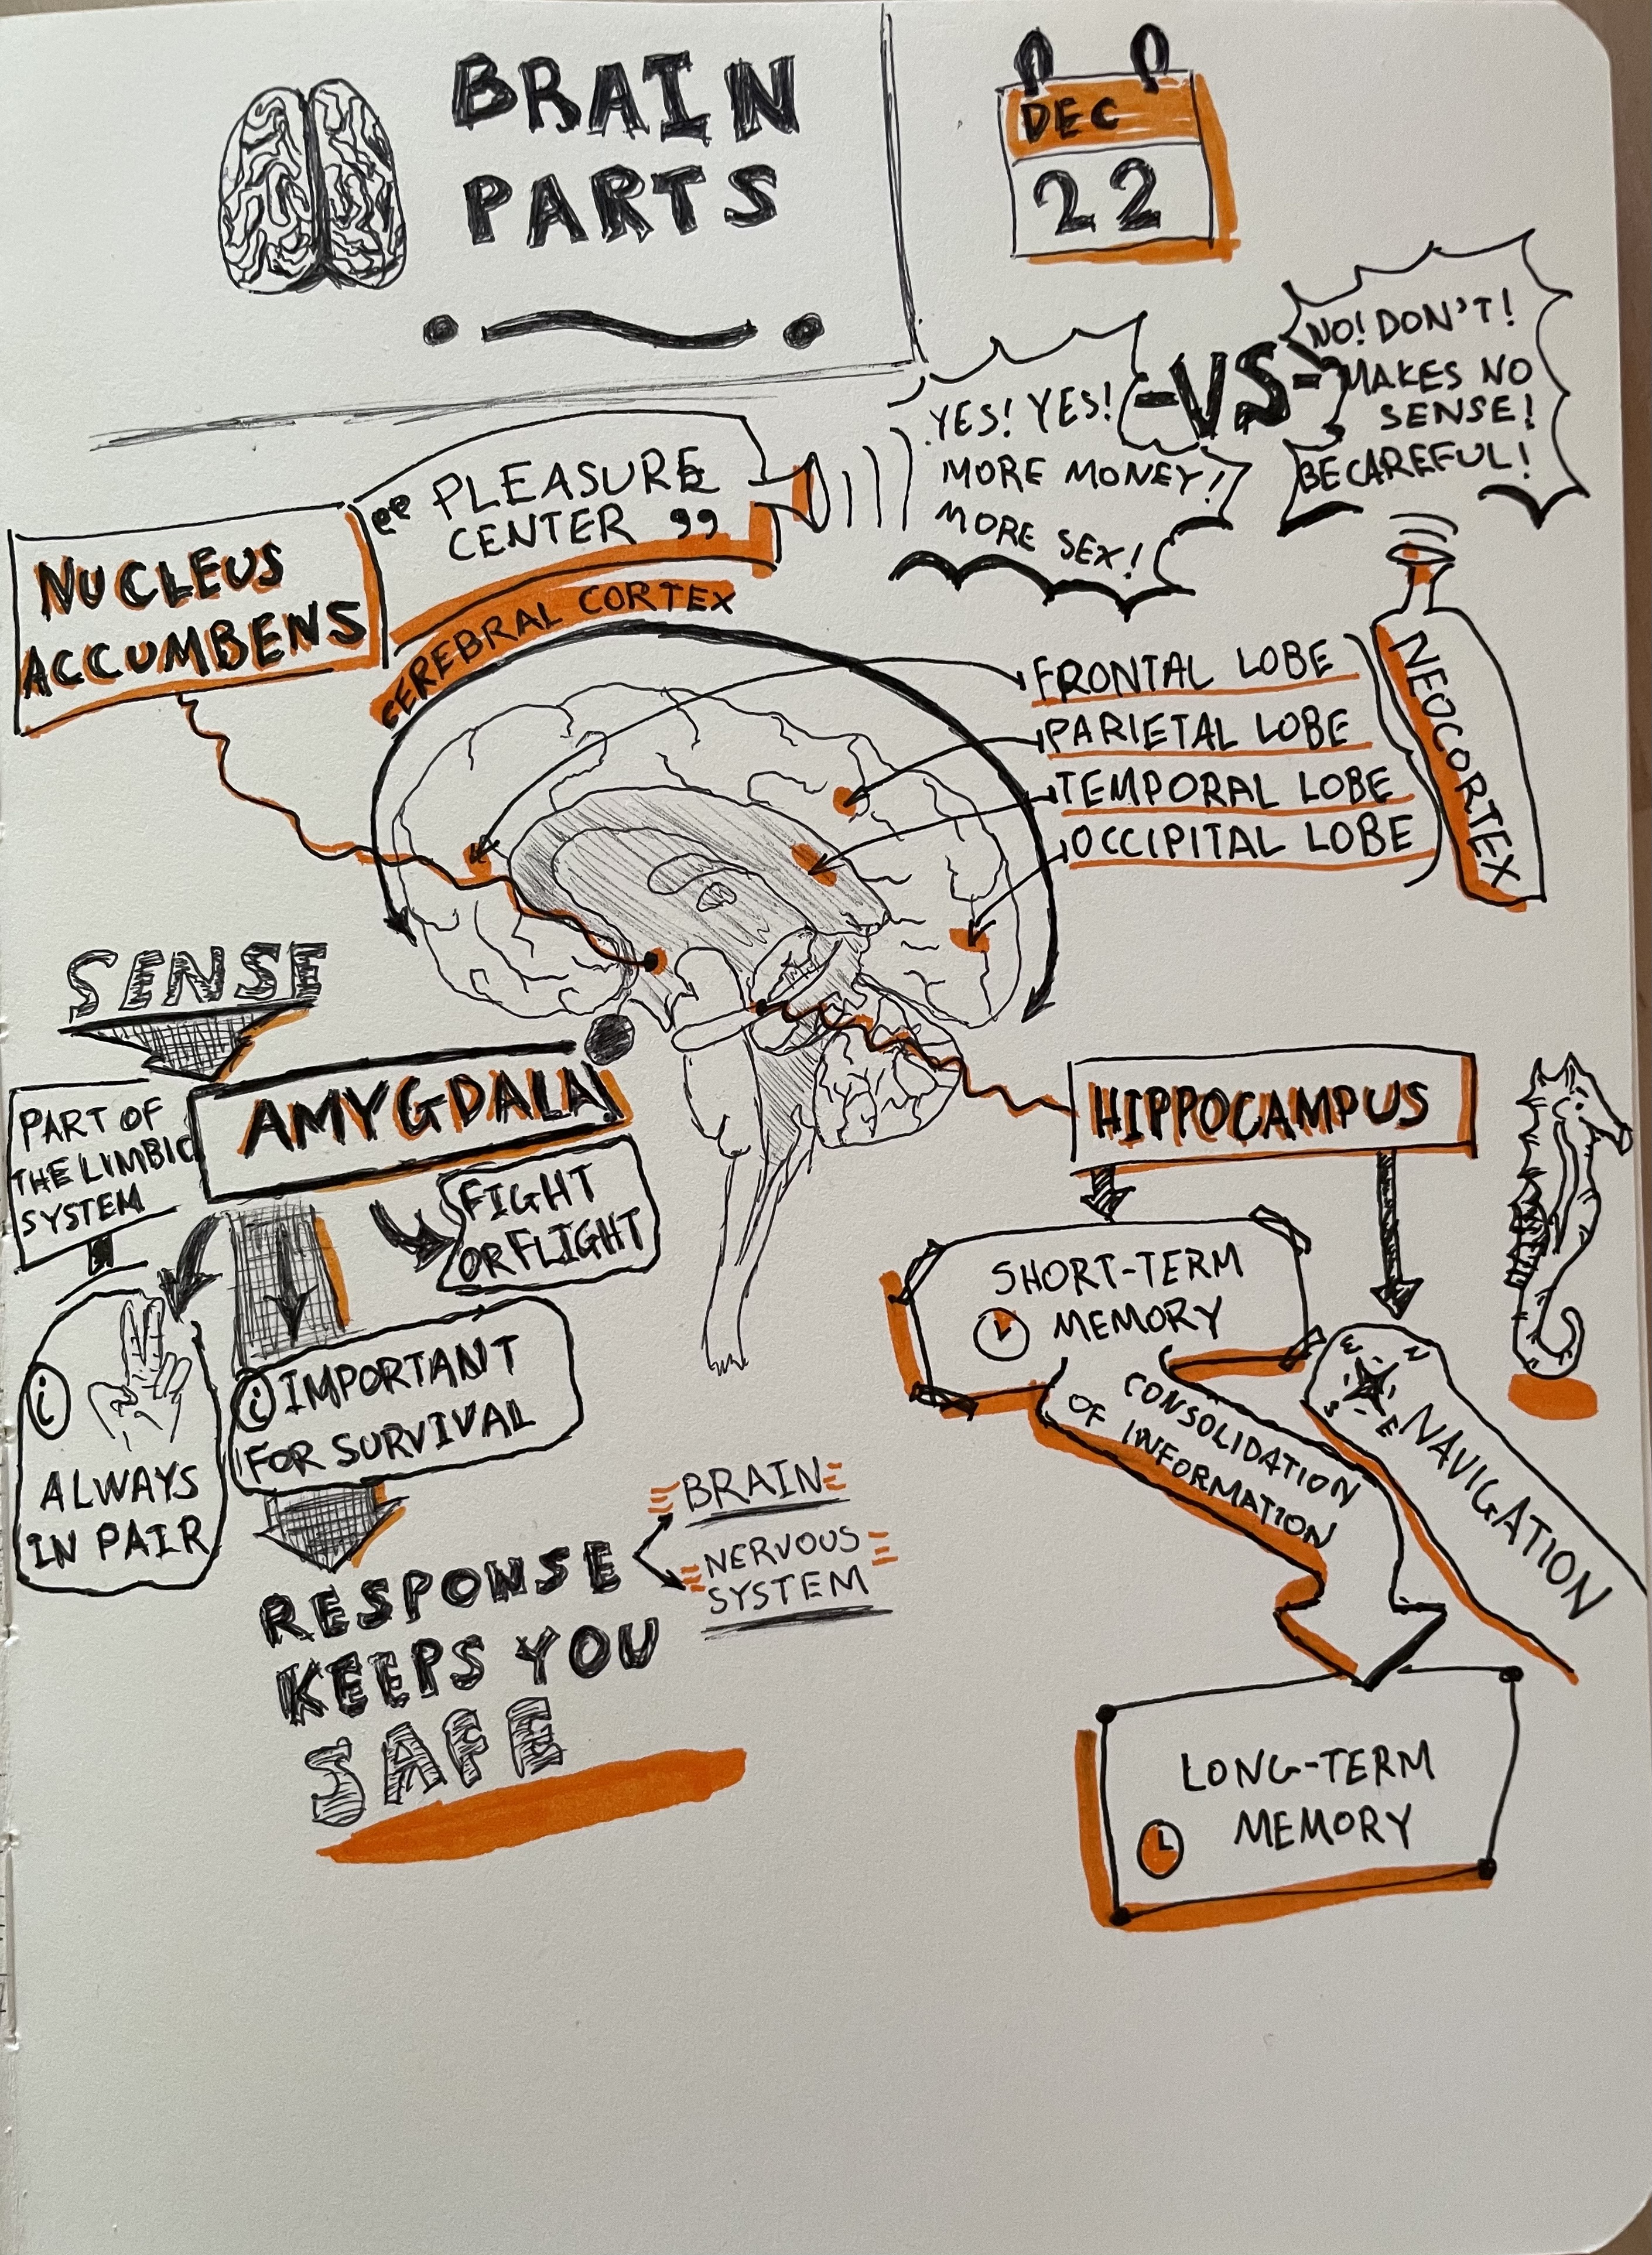 BRAIN
PARTS
DEC
22
NUCLEUS
ACCUMBENS
"PLEASURE
CENTER"
YES! YES!
MORE MONEY!
MORE SEX!
-VS-
NO! DON'T!
MAKES NO
SENSE!
BE CAREFUL!
CEREBRAL CORTEX
FRONTAL LOBE
PARIETAL LOBE
TEMPORAL LOBE
OCCIPITAL LOBE
NEOCORTEX
SENSE
AMYGDALA!
PART OF
THE LIMBIC
SYSTEM
FIGHT
OR FLIGHT
i
ALWAYS
IN PAIR
i IMPORTANT
FOR SURVIVAL
RESPONSE
KEEPS YOU
SAFE
BRAIN
NERVOUS
SYSTEM
HIPPOCAMPUS
SHORT-TERM
MEMORY
CONSOLIDATION
OF INFORMATION
W
N
S
E
NAVIGATION
LONG-TERM
MEMORY